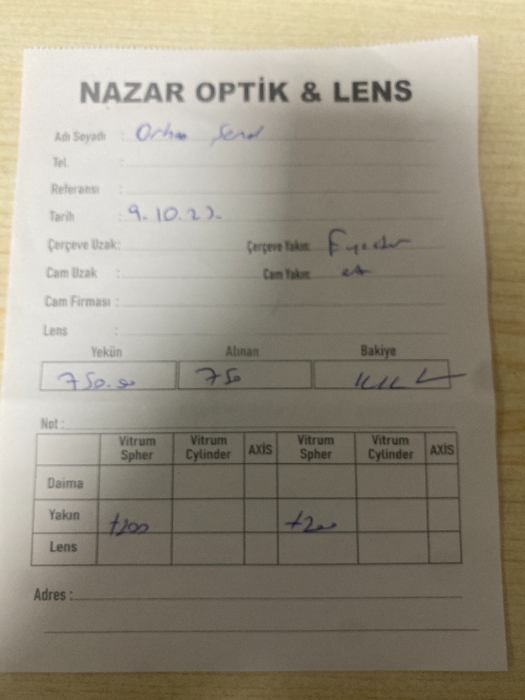 NAZAR OPTİK & LENS
Adı Soyadı : Orhan Şenol
Tel. :
Referansı :
Tarih : 9.10.23.
Çerçeve Uzak: Çerçeve Yakın:
Cam Uzak : Cam Yakın:
Cam Firması :
Lens :
Yekün Alınan Bakiye
750.00 750
Not :
Vitrum Spher Vitrum Cylinder AXİS Vitrum Spher Vitrum Cylinder AXİS
Daima
Yakın +200 +200
Lens
Adres :